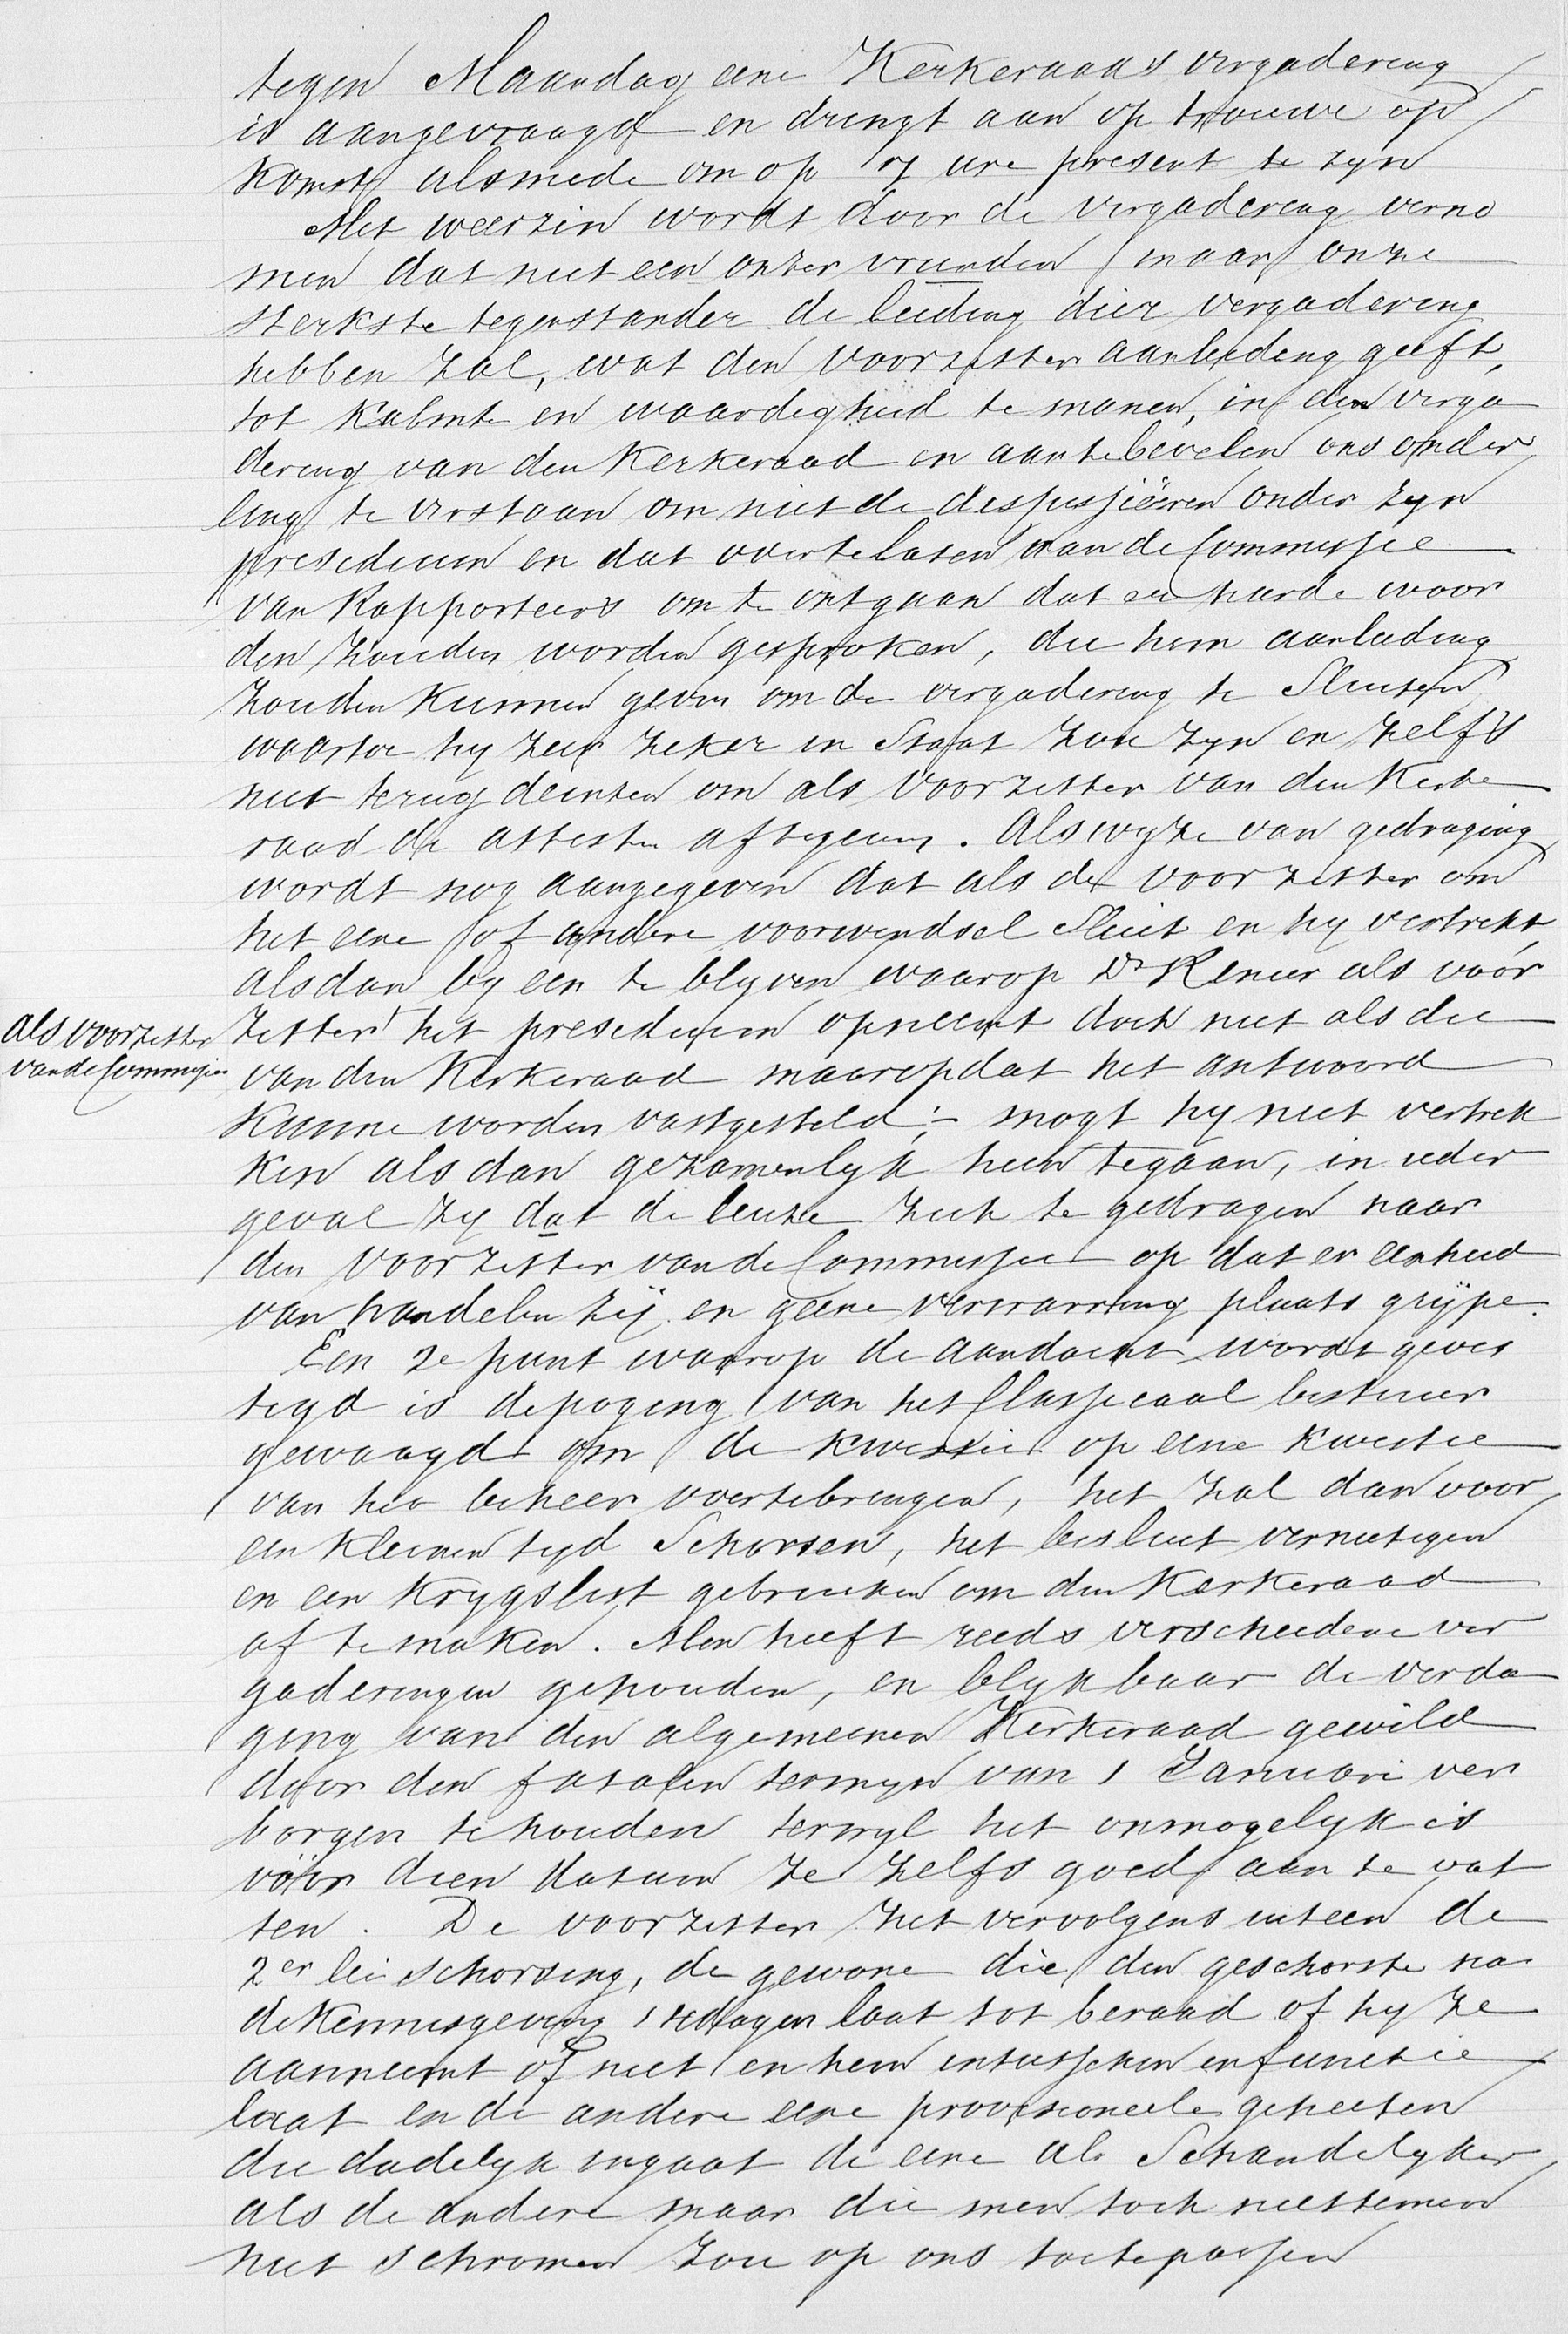 tegen Maandag eene Kerkeraads vergadering
is aangevraagd en dringt aan op trouwe op
komst alsmede om op 7 ure present te zyn
Met weerzin wordt door de vergadering verno
men dat niet een onzer vrienden maar onze
sterkste tegenstander de leiding dier vergadering
hebben zal, wat den voorzitter aanleiding geeft,
tot kalmte en waardigheid te manen, in den verga
dering van den Kerkeraad en aantebevelen ons onder
ling te verstaan om niet de discussiëren onder zyn
presidium en dat overtelaten aan de Commissie
van Rapporteurs om te ontgaan dat er harde woor
den zouden worden gesproken, die hem aanleiding
zouden kunnen geven om de vergadering te Sluiten
waartoe hy zeer zeker in Staat zou zyn en zelfs
niet terug deinzen om als Voorzitter van den Kerke
raad de attesten aftegeven. Als wyze van gedraging
wordt nog aangegeven dat als de voorzitter om
het eene of andere voorwendsel Sluit en hy vertrekt
alsdan by een te blyven waarop Dr Renier als voor
zitter het presidium opneemt doch niet als die
als voorzitter
van de Commissie
van den Kerkeraad maar opdat het antwoord
kunne worden vastgesteld; - mogt hy niet vertrek
ken als dan gezamenlyk heen tegaan, in ieder
geval zy dat de leuze zich te gedragen naar
den Voorzitter van de Commissie op dat er eenheid
van handelen zij en geene verwarring plaats grijpe.
Een 2e punt waarop de aandacht wordt geves
tigd is de poging van het Classicaal bestuur
gewaagd om de kwestie op eene kwestie
van het beheer overtebrengen, het zal dan voor
een kleinen tyd Schorsen, het besluit vernietigen
en een krygslist gebruiken om den Kerkeraad
af te maken. Men heeft reeds verscheidene ver
gaderingen gehouden, en blykbaar de verda
ging van den algemeenen Kerkeraad gewild
door den fatalen termyn van 1 Januari ver
borgen te houden terwyl het onmogelyk is
vóór dien datum ze zelfs goed aan te vat
ten. De voorzitter zet vervolgens uiteen de
2er lei schorsing, de gewone die den geschorste na
de kennisgeving dagen laat tot beraad of hy ze
aanneemt of niet en hem intusschen in functie
laat en de andere eene provisioneele geheeten
die dadelyk ingaat de eene al Schandelyker
als de andere maar die men toch niettemin
niet schromen zou op ons toetepassen